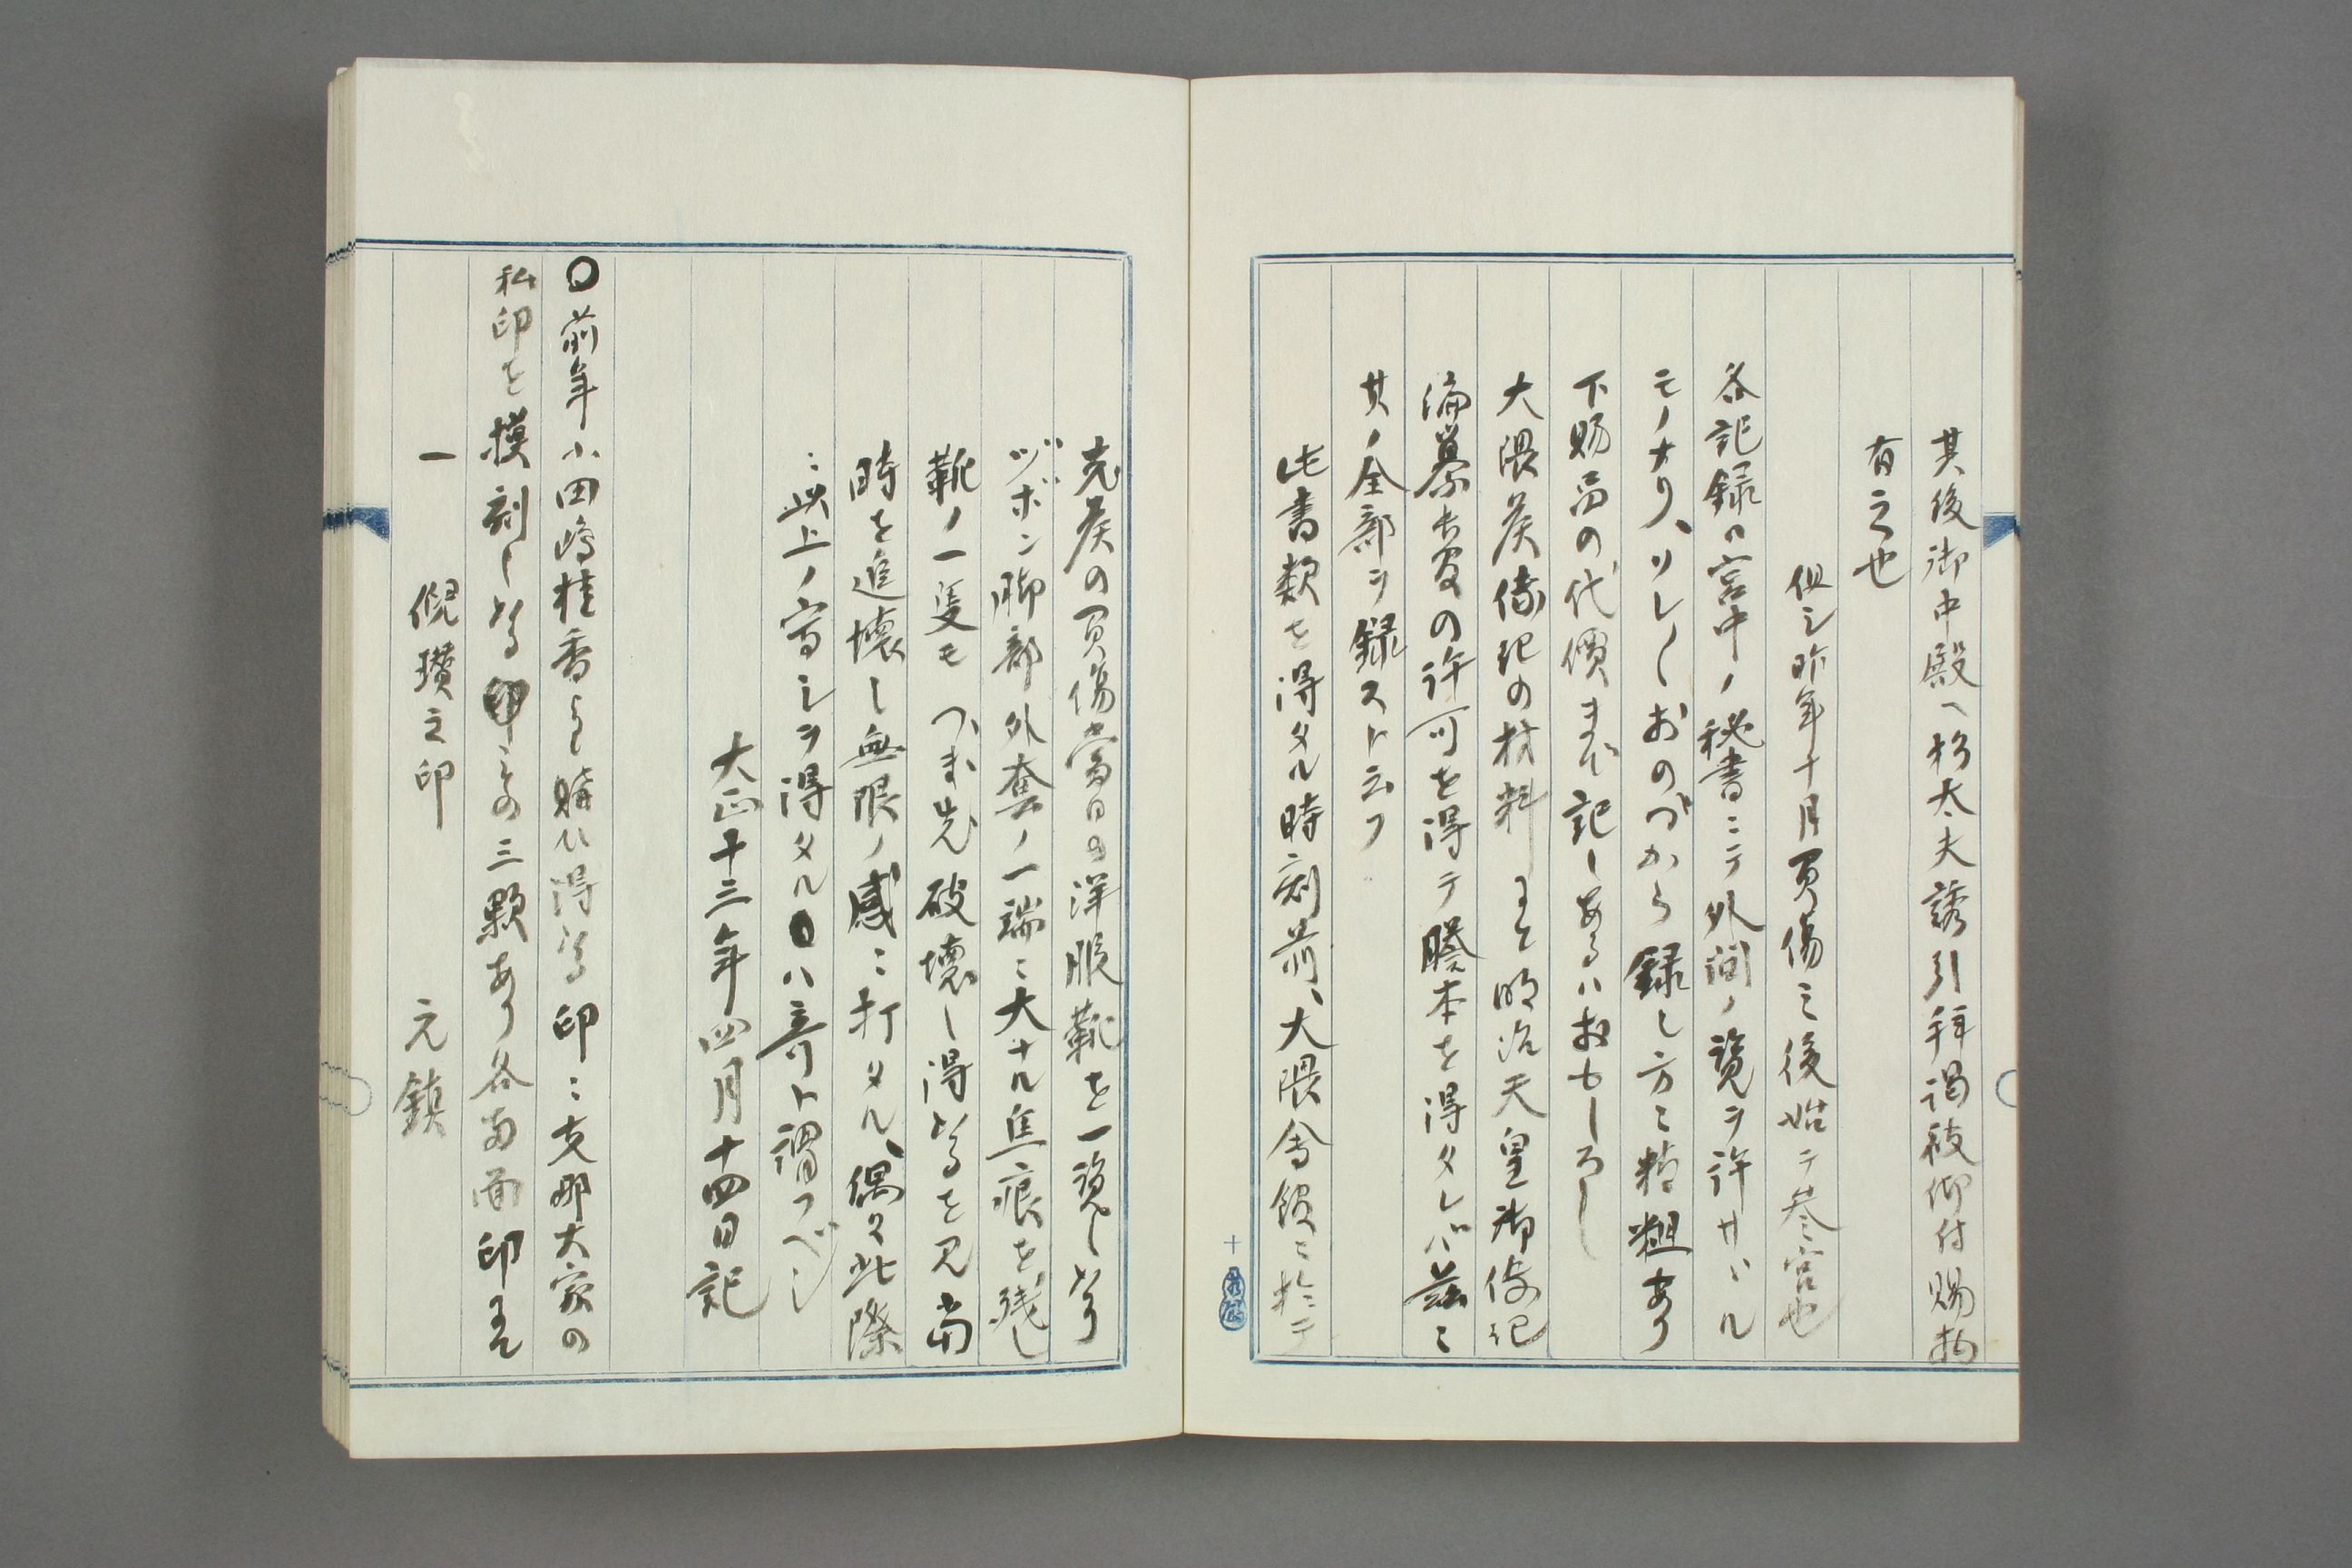 其後御中殿ヘ杉太夫誘引拝謁被仰付賜物
有之也
但シ昨年十月負傷之後始テ参宮也
各記録ハ宮中ノ秘書ニテ外間ノ覧ヲ許サヾル
モノナリ、ソレ〱おのづから録し方ニ精粗あり
下賜品の代價まで記しあるハおもしろし
大隈侯傳記の材料として明治天皇御傳記
編纂長官の許可を得テ謄本を得タレバ茲ニ
其ノ全部ヲ録スト云フ
此書類を得タル時刻前、大隈會館ニ於テ
先侯の負傷當日の洋服靴を一覧しけり
ヅボン脚部外套ノ一端ニ大ナル焦痕を残し
靴ノ一隻もつま先破壊し得さるを見當
時を追懐し無限ノ感ニ打タル、偶々此際
ニ此上ノ寫シヲ得タルハ奇ト謂フベシ
大正十三年四月十四日記
〇前年小田嶋桂香より購ひ得たる印ニ支那大家の
私印を模刻したるもの三顆あり各両面印にて
一 倪瓚之印 元鎮